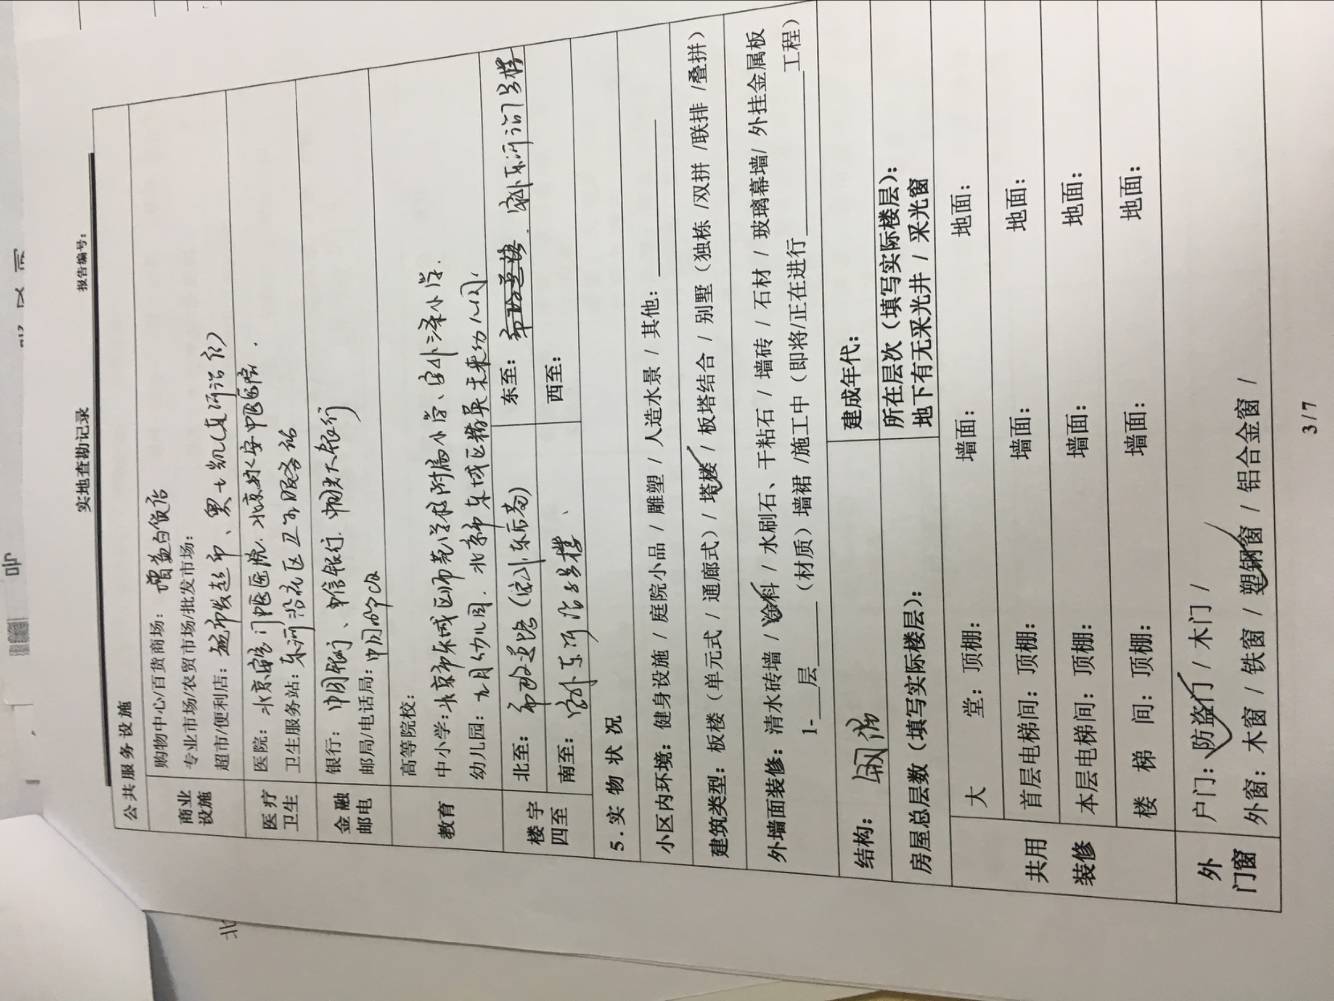 实地查勘记录
报告编号:
公共服务设施
商业设施
购物中心/百货商场: 增益百货店
专业市场/农贸市场/批发市场:
超市/便利店:
医疗卫生
医院: 北京 中医医院. 北京永安中医医院.
卫生服务站: 东河沿社区卫生服务站
金融邮电
银行: 中国银行、中信银行. 中国光大银行
邮局/电话局: 中国
教育
高等院校:
中小学: 北京市东城区师范学校附属小学、 小学.
幼儿园: 幼儿园. 北京市东城区 未来幼儿园.
楼宇四至
北至: 市政道路
东至: 东河沿 号楼
南至: 东河沿 号楼、
西至:
5.实物状况
小区内环境: 健身设施 / 庭院小品 / 雕塑 / 人造水景 / 其他:
建筑类型: 板楼 (单元式 / 通廊式) / 塔楼 / 板塔结合 / 别墅 (独栋 /双拼 /联排 /叠拼)
外墙面装修: 清水砖墙 / 涂料 / 水刷石、干粘石 / 墙砖 / 石材 / 玻璃幕墙/ 外挂金属板
1-____层____(材质) 墙裙 /施工中 (即将/正在进行____工程)
结构: 钢混
建成年代:
房屋总层数 (填写实际楼层):
所在层次 (填写实际楼层):
地下有无采光井 / 采光窗
共用装修
大堂: 顶棚: 墙面: 地面:
首层电梯间: 顶棚: 墙面: 地面:
本层电梯间: 顶棚: 墙面: 地面:
楼梯间: 顶棚: 墙面: 地面:
外门窗
户门: 防盗门 / 木门 /
外窗: 木窗 / 铁窗 / 塑钢窗 / 铝合金窗 /
3/7